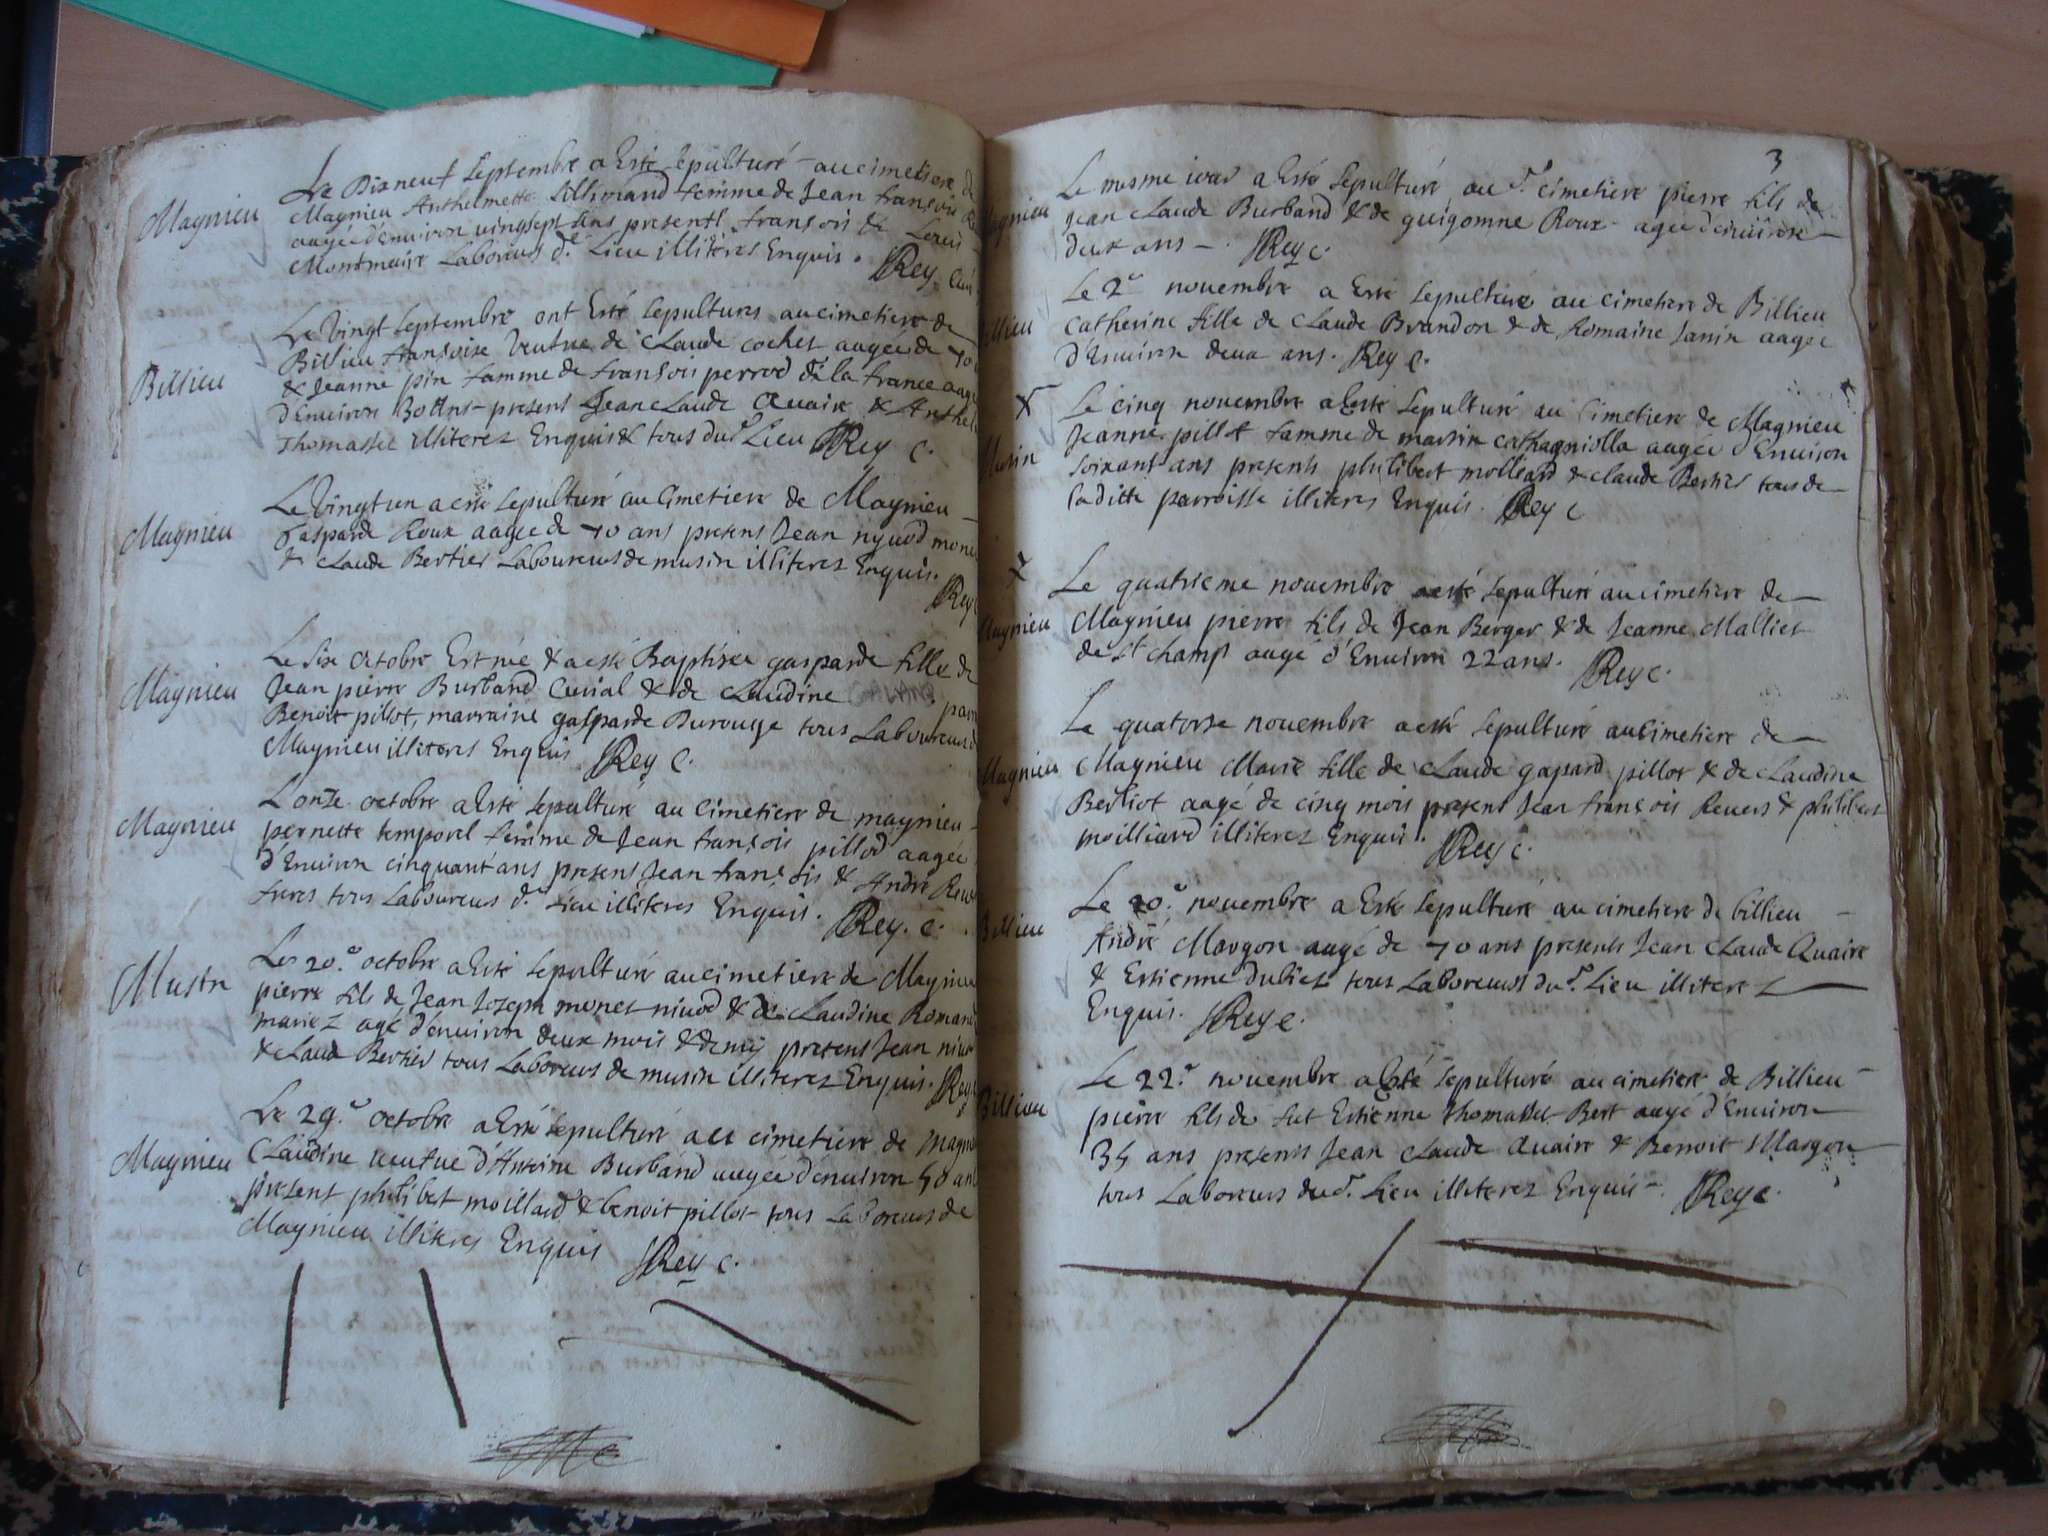 Magnieu
Le Dixneuf Septembre a Esté Sepulturé au cimetiere de
Magnieu Anthelmette femme de Jean fransois
augée d'environ vingsept ans presents fransois & Louis
Montmaire Laboreurs d. Lieu illiteres Enquis. Rey Curé
Billieu
Le Vingt Septembre ont Esté Sepulturés au cimetiere de
Billieu fransoise Veufue de Claude cochet augée de 70
& Jeanne pin famme de fransois perrod de la france aagée
d'Environ 30 Ans present Jean Claude Quaire & Anthel
Thomasset illiterez Enquis & tous du d. Lieu Rey C.
Magnieu
Le Vingtun a esté Sepulturé au Cimetiere de Magnieu
Gasparde Roux aagée de 70 ans presens Jean nyuod mone
& Claude Bertier Laboureurs de musin illiterez Enquis.
Rey
Magnieu
Le Six Octobre Est né & a esté Baptisée gasparde fille de
Jean pierre Burband Curial & de Claudine parr
Benoit pillot, marraine gasparde Burouge tous Laboureurs d
Magnieu illiteres Enquis Rey C.
Magnieu
L onze octobre a Esté Sepulturé au Cimetiere de magnieu
pernette temporel femme de Jean fransois pillod aagée
d'Environ cinquant ans present Jean fransois & André Reue
freres tous Laboureurs d. Lieu illiteres Enquis. Rey. C.
Musin
Le 20.e octobre a Esté Sepulturé au cimetiere de Magnieu
pierre fils de Jean Joseph monet niuod & de Claudine Romand
mariez agé d'enuiron deux mois & demy presens Jean niuod
& Claud Bertier tous Laboreurs de musin illiterez Enquis. Rey
Magnieu
Le 29.e octobre a Esté Sepulturé au cimetiere de magn
Claudine ueufue d'Antoine Burband augée d'enuiron 50 ans
present philibet moillard & benoit pillot tous Laboreurs de
Magnieu illiteres Enquis Rey C.
3
Magnieu
Le mesme iour a Esté Sepulturé au d. cimetiere pierre fils de
Jean Claude Burband & de guigonne Roux agée d'enuiron
deux ans. Rey C.
Billieu
Le 2e nouembre a Esté Sepulturé au cimetiere de Billieu
Catherine fille de Claude Brandon & de Romaine Janin aagée
d'Enuiron deux ans. Rey C.
Musin
Le cinq nouembre a Esté Sepulturé au Cimetiere de Magnieu
Jeanne pillot famme de martin cathagniolla augée d'Enuiron
soixant ans presents philibert molliard & Claude Bertier tous de
laditte parroisse illiteres Enquis. Rey C
Magnieu
Le quatrieme nouembre a esté Sepulturé au cimetiere de
Magnieu pierre fils de Jean Berger & de Jeanne Malliet
de St champ augé d'Enuiron 22 ans. Rey C.
Magnieu
Le quatorse nouembre a esté Sepulturé au Cimetiere de
Magnieu Marie fille de Claude gaspard pillot & de Claudine
Berliot aagé de cinq mois present Jean fransois Reuers & philibert
moilliard illiterez Enquis. Rey C.
Billieu
Le 20.e nouembre a Esté Sepulturé au cimetiere de billieu
André Margon augé de 70 ans presents Jean Claude Quaire
& Estienne dubiez tous Laboreurs du d. Lieu illiterez
Enquis. Rey C.
Billieu
Le 22.e nouembre a Esté Sepulturé au cimetiere de Billieu
pierre fils de fut Estienne Thomasset Bert augé d'Enuiron
35 ans presents Jean Claude Quaire & Benoit Margon
tous Laboreurs du d. Lieu illiterez Enquis. Rey C.